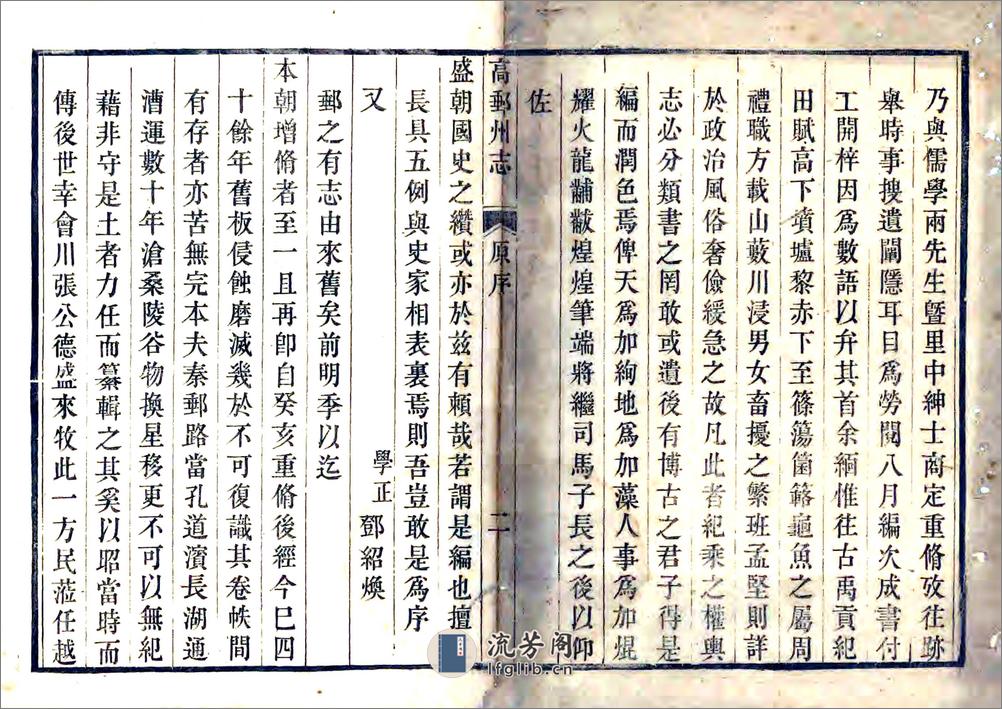 乃與儒學兩先生曁里中紳士商定重脩攷往跡
舉時事搜遺闡隱耳目爲勞閱八月編次成書付
工開梓因爲數語以弁其首余緬惟往古禹貢紀
田賦高下墳壚黎赤下至篠簜箘簬龜魚之屬周
禮職方載山藪川浸男女畜擾之繁班孟堅則詳
於政治風俗奢儉緩急之故凡此者紀乘之權輿
志必分類書之罔敢或遺後有博古之君子得是
編而潤色焉俾天爲加絢地爲加藻人事爲加焜
耀火龍黼黻煌煌筆端將繼司馬子長之後以仰
佐
高郵州志 原序 二
盛朝國史之纘或亦於兹有頼哉若謂是編也擅
長具五例與史家相表裏焉則吾豈敢是爲序
又 學正 鄧紹煥
郵之有志由來舊矣前明季以迄
本朝增脩者至一且再卽自癸亥重脩後經今巳四
十餘年舊板侵蝕磨滅幾於不可復識其卷帙間
有存者亦苦無完本夫秦郵路當孔道濱長湖通
漕運數十年滄桑陵谷物換星移更不可以無紀
藉非守是土者力任而纂輯之其奚以昭當時而
傳後世幸會川張公德盛來牧此一方民蒞任越
流芳阁
lfglib.cn